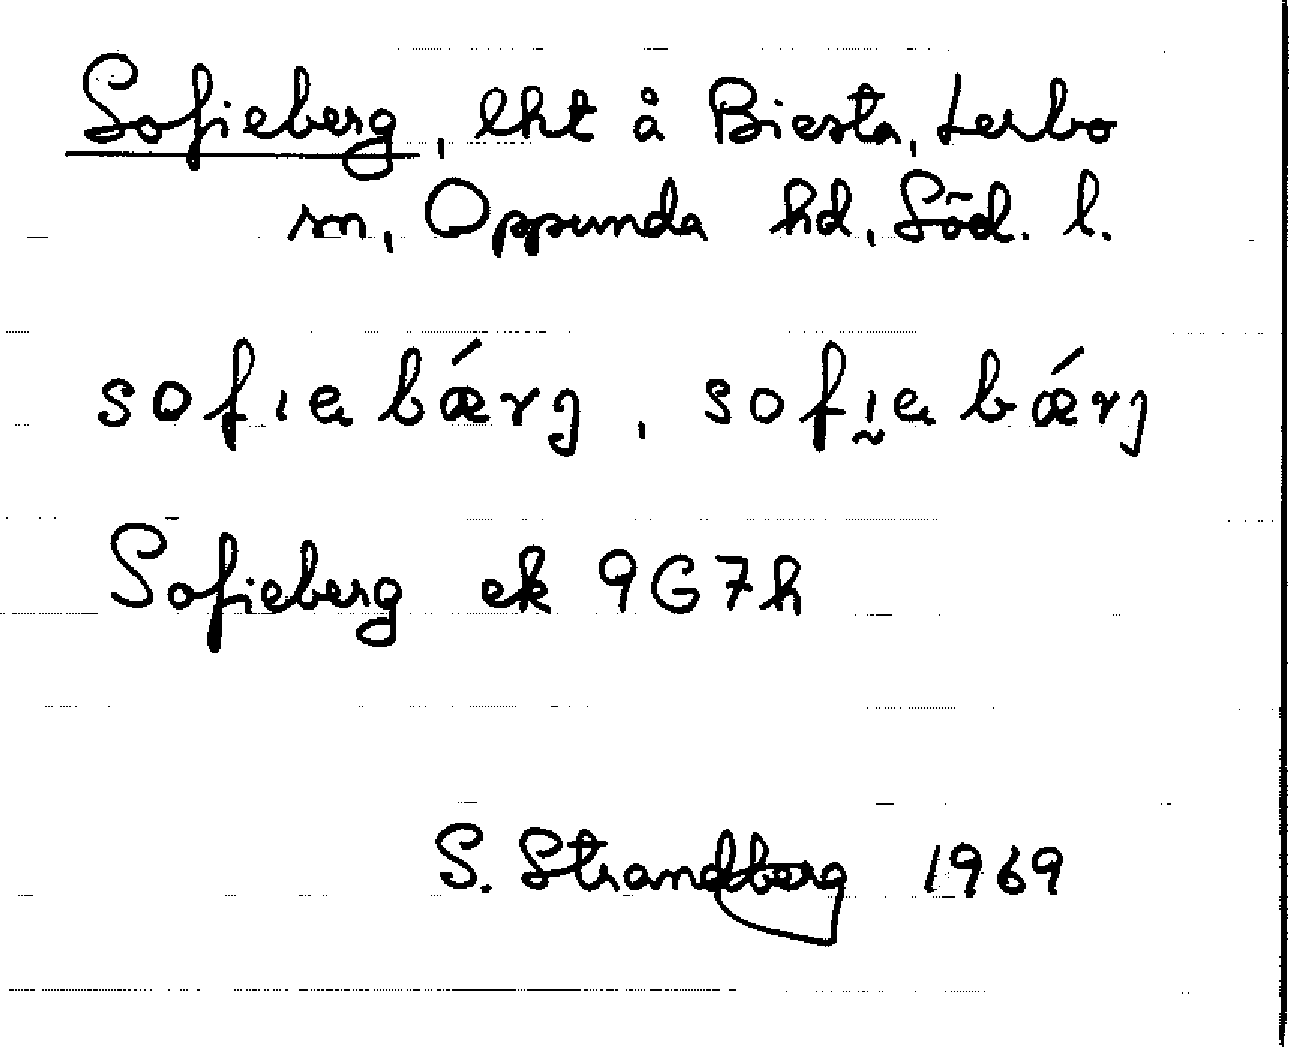 Sofieberg, lht å Biesta, Lerbo
sn, Oppunda hd, Söd. l.
sofıa bǽrg, sofı̰a bǽrj
Sofieberg ek 9G7h
S. Strandberg 1969